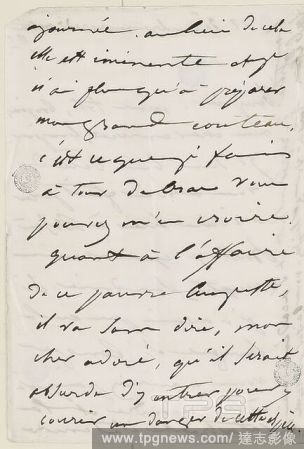 ajournée. au lieu de cela
elle est iminente et je
n'ai plus qu'à préparer
mon grand couteau,
c'est ce que je fais
à tour de bras vous
pouvez m'en croire.
quant à l'affaire
de ce pauvre Auguste,
il va sans dire, mon
cher adoré, qu'il serait
absurde d'y entrer pour y
courir un danger de cette
www.tpgnews.com/達志影像
TPG